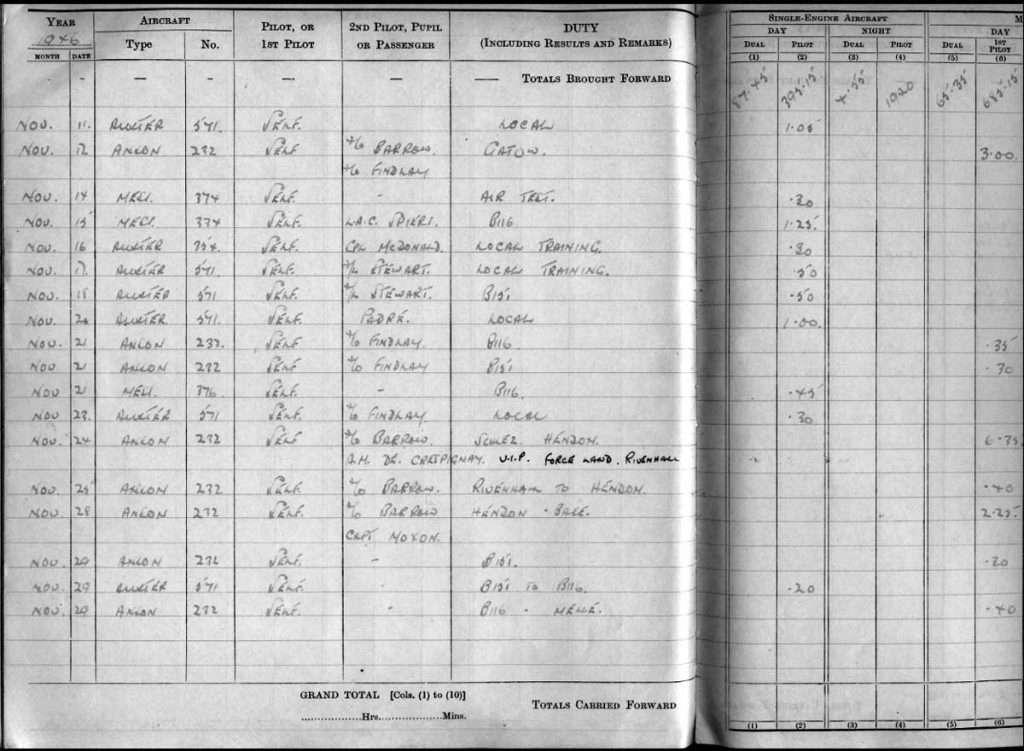 YEAR AIRCRAFT PILOT, OR 1ST PILOT 2ND PILOT, PUPIL OR PASSENGER DUTY (INCLUDING RESULTS AND REMARKS) SINGLE-ENGINE AIRCRAFT M
1946 Type No. DAY NIGHT DAY
MONTH DATE DUAL PILOT DUAL PILOT DUAL 1ST PILOT
(1) (2) (3) (4) (5) (6)
— — — — — TOTALS BROUGHT FORWARD 87.45 395.15 4.55 19.20 65.35 685.15
NOV. 11. AUSTER 571. SELF. LOCAL 1.05
NOV. 12 ANSON 232 SELF. F/O BARROW. GATOW. 3.00
F/O FINDLAY
NOV. 14 MESS. 374 SELF. - AIR TEST. .20
NOV. 15 MESS. 374 SELF. L.A.C. SPIERS. B116 1.25.
NOV. 16 AUSTER SELF. CPL MCDONALD. LOCAL TRAINING. .30
NOV. 17. AUSTER 571. SELF. STEWART. LOCAL TRAINING. .50
NOV. 18 AUSTER 571 SELF. STEWART. B151 .50
NOV. 20 AUSTER 571. SELF. PADRE. LOCAL 1.00.
NOV. 21 ANSON 232. SELF. F/O FINDLAY. B116. .35
NOV. 21 ANSON 232 SELF. F/O FINDLAY B151 .30
NOV 21 MESS. 376. SELF. - B116. .45
NOV. 23. AUSTER 571 SELF. F/O FINDLAY LOCAL .30
NOV. 24 ANSON 232 SELF F/O BARROW. HENDON. 6.35
A.M. DE. CRESPIGNAY. V.I.P. FORCE LAND. RIVENHALL
NOV. 25 ANSON 232 SELF F/O BARROW. RIVENHALL TO HENDON. .40
NOV. 28 ANSON 232 SELF. F/O BARROW HENDON - BASE. 2.25.
CAPT MOXON.
NOV. 29 ANSON 232 SELF. - B151. .20
NOV. 29 AUSTER 571 SELF. - B151 TO B116. .20
NOV. 29 ANSON 232 SELF. - B116 - .40
GRAND TOTAL [Cols. (1) to (10)]
Hrs. Mins. TOTALS CARRIED FORWARD
(1) (2) (3) (4) (5) (6)